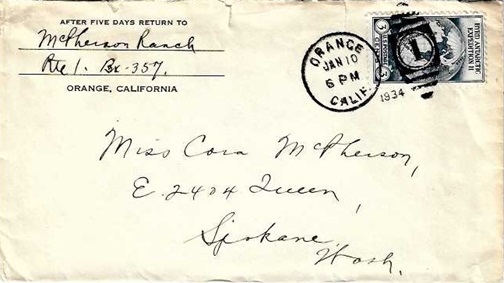 AFTER FIVE DAYS RETURN TO
McPherson Ranch
Rte 1. Bx-357.
ORANGE, CALIFORNIA
ORANGE
JAN 10
6 PM
CALIF.
1934
BYRD ANTARCTIC
EXPEDITION II
3 3
1
Miss Cora McPherson,
E. 2404 Queen,
Spokane,
Wash.